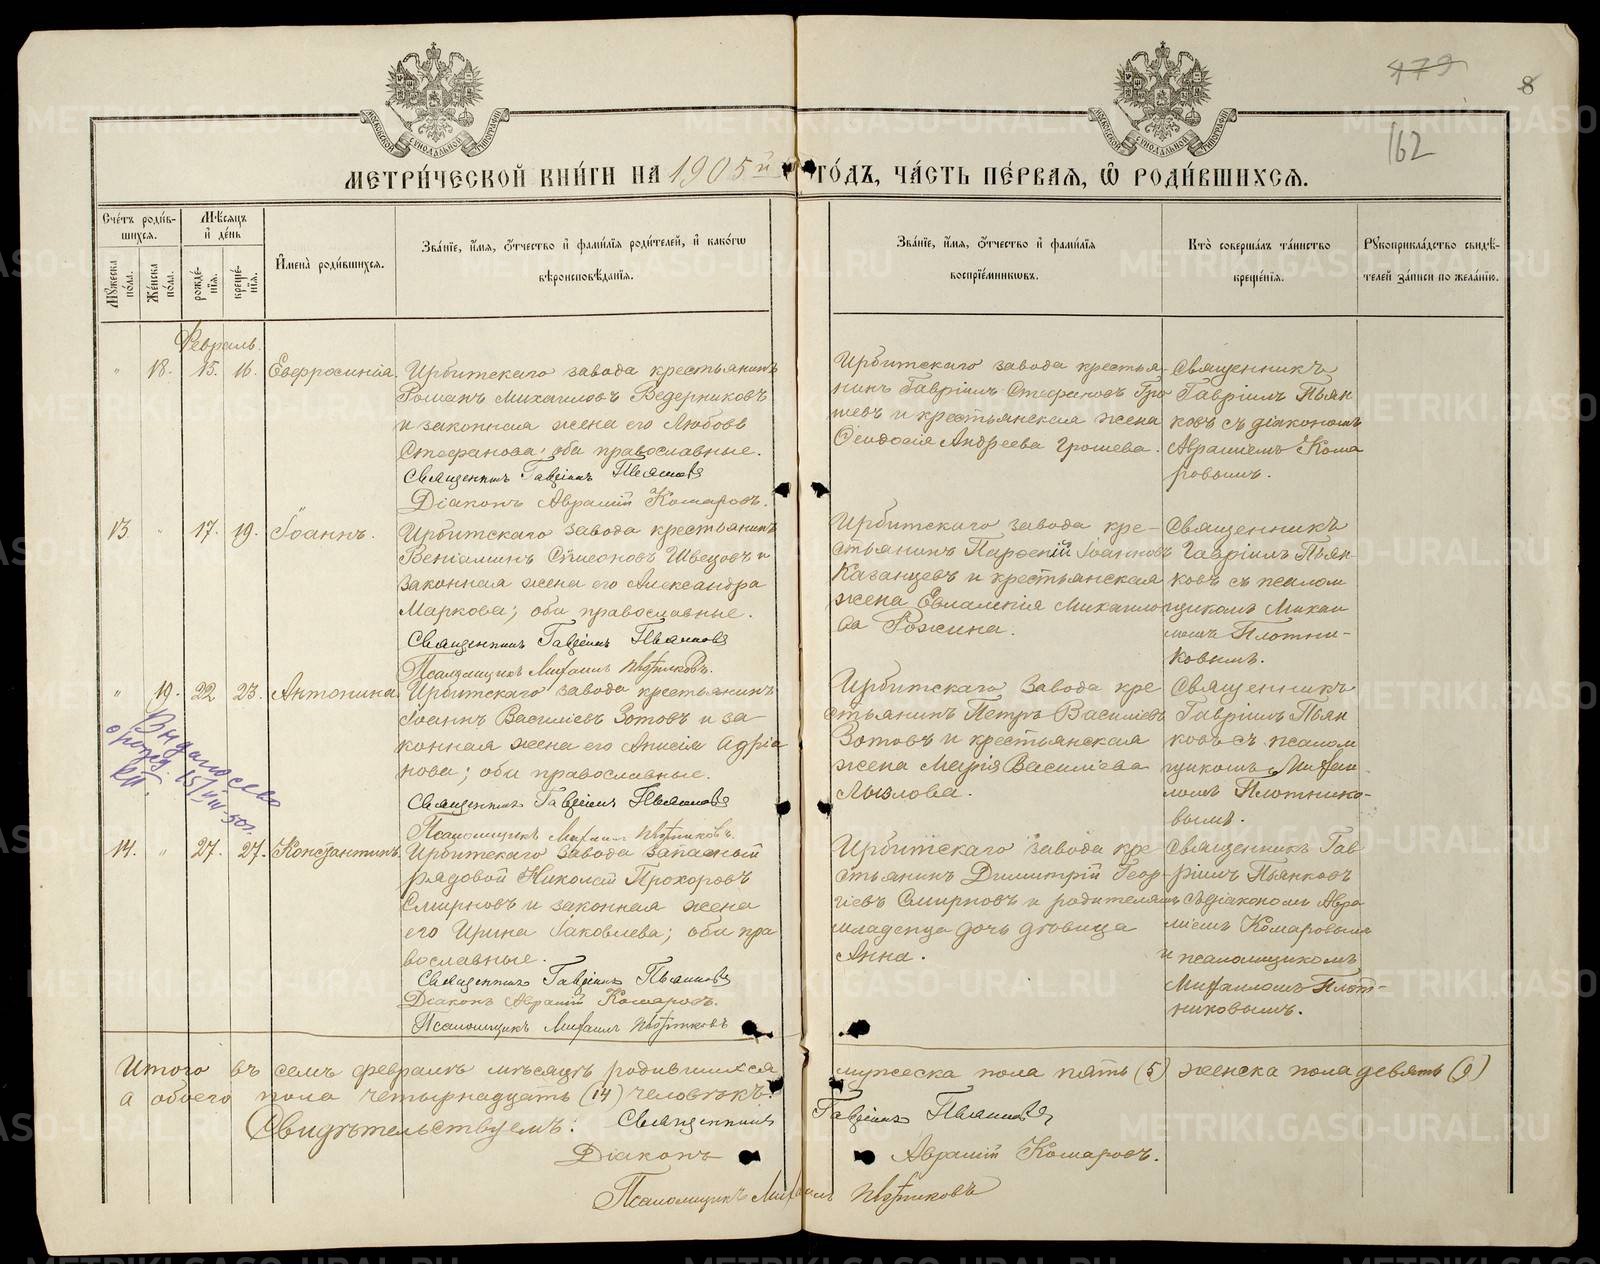 479
8
162
МОСКОВСКОЙ СѴНОДАЛЬНОЙ ТИПОГРАФІИ
МОСКОВСКОЙ СѴНОДАЛЬНОЙ ТИПОГРАФІИ
МЕТРИ́ЧЕСКОЙ КНИ́ГИ НА 1905й ГО́ДЪ, ЧА́СТЬ ПЕ́РВАѦ, Ѡ҆ РОДИ́ВШИХСѦ.
Сче́тъ роди́вшихсѧ.
Мѣ́сѧцъ и҆ де́нь
Мꙋ́жеска по́ла.
Же́нска по́ла.
рожде́нїѧ.
креще́нїѧ.
И҆мена̀ роди́вшихсѧ.
Зва́нїе, и҆́мѧ, ѻ҆́тчество и҆ фами́лїѧ роди́телей, и҆ како́гѡ вѣроисповѣ́данїѧ.
Зва́нїе, и҆́мѧ, ѻ҆́тчество и҆ фами́лїѧ воспрїе́мникѡвъ.
Кто̀ соверша́лъ та́инство креще́нїѧ.
Рꙋкоприкла́дство свидѣ́телей за́писи по жела́нїю.
Февраль.
" 18. 15. 16. Евфросинія.
Ирбитскаго завода крестьянинъ
Романъ Михаиловъ Ведерниковъ
и законная жена его Любовь
Стефанова; оба православные.
Священникъ Гавріилъ Пьянковъ
Діаконъ Аврамій Комаровъ.
Ирбитскаго завода крестья-
нинъ Гавріилъ Стефановъ Гро
шевъ и крестьянская жена
Ѳеодосія Андреева Грошева.
Священникъ
Гавріилъ Пьян
ковъ съ діакономъ
Авраміемъ Кома
ровымъ.
13. " 17. 19. Іоаннъ.
Ирбитскаго завода крестьянинъ
Веніаминъ Симеоновъ Швецовъ и
законная жена его Александра
Маркова; оба православные.
Священникъ Гавріилъ Пьянковъ
Псаломщикъ Михаилъ Плотниковъ.
Ирбитскаго завода кре-
стьянинъ Парѳеній Іоанновъ
Казанцевъ и крестьянская
жена Евлампія Михаило
ва Рожина.
Священникъ
Гавріилъ Пьян
ковъ съ псалом
щикомъ Михаи
ломъ Плотни-
ковымъ.
" 19. 22. 23. Антонина
Ирбитскаго завода крестьянинъ
Іоаннъ Василіевъ Зотовъ и за
конная жена его Анисія Адріа
нова; оба православные.
Священникъ Гавріилъ Пьянковъ
Псаломщикъ Михаилъ Плотниковъ.
Ирбитскаго завода кре
стьянинъ Петръ Василіевъ
Зотовъ и крестьянская
жена Марія Василіева
Лызлова.
Священникъ
Гавріилъ Пьян
ковъ съ псалом
щикомъ Михаи
ломъ Плотнико-
вымъ.
Выдано св-во
о рожд. 15/VIII-50г.
14. " 27. 27. Константинъ.
Ирбитскаго завода запасный
рядовой Николай Прохоровъ
Смирновъ и законная жена
его Ирина Іаковлева; оба пра
вославные.
Священникъ Гавріилъ Пьянковъ
Діаконъ Аврамій Комаровъ.
Псаломщикъ Михаилъ Плотниковъ
Ирбитскаго завода кре
стьянинъ Димитрій Геор-
гіевъ Смирновъ и родителямъ
младенца дочь дѣвица
Анна.
Священникъ Гав
ріилъ Пьянковъ
съ діакономъ Авра
міемъ Комаровымъ
и псаломщикомъ
Михаиломъ Плот-
никовымъ.
Итого въ семъ февралѣ мѣсяцѣ родившихся мужеска пола пять (5) женска пола девять (9)
а обоего пола четырнадцать (14) человѣкъ.
Свидѣтельствуемъ: Священникъ Гавріилъ Пьянковъ
Діаконъ Аврамій Комаровъ.
Псаломщикъ Михаилъ Плотниковъ
METRIKI.GASO-URAL.RU